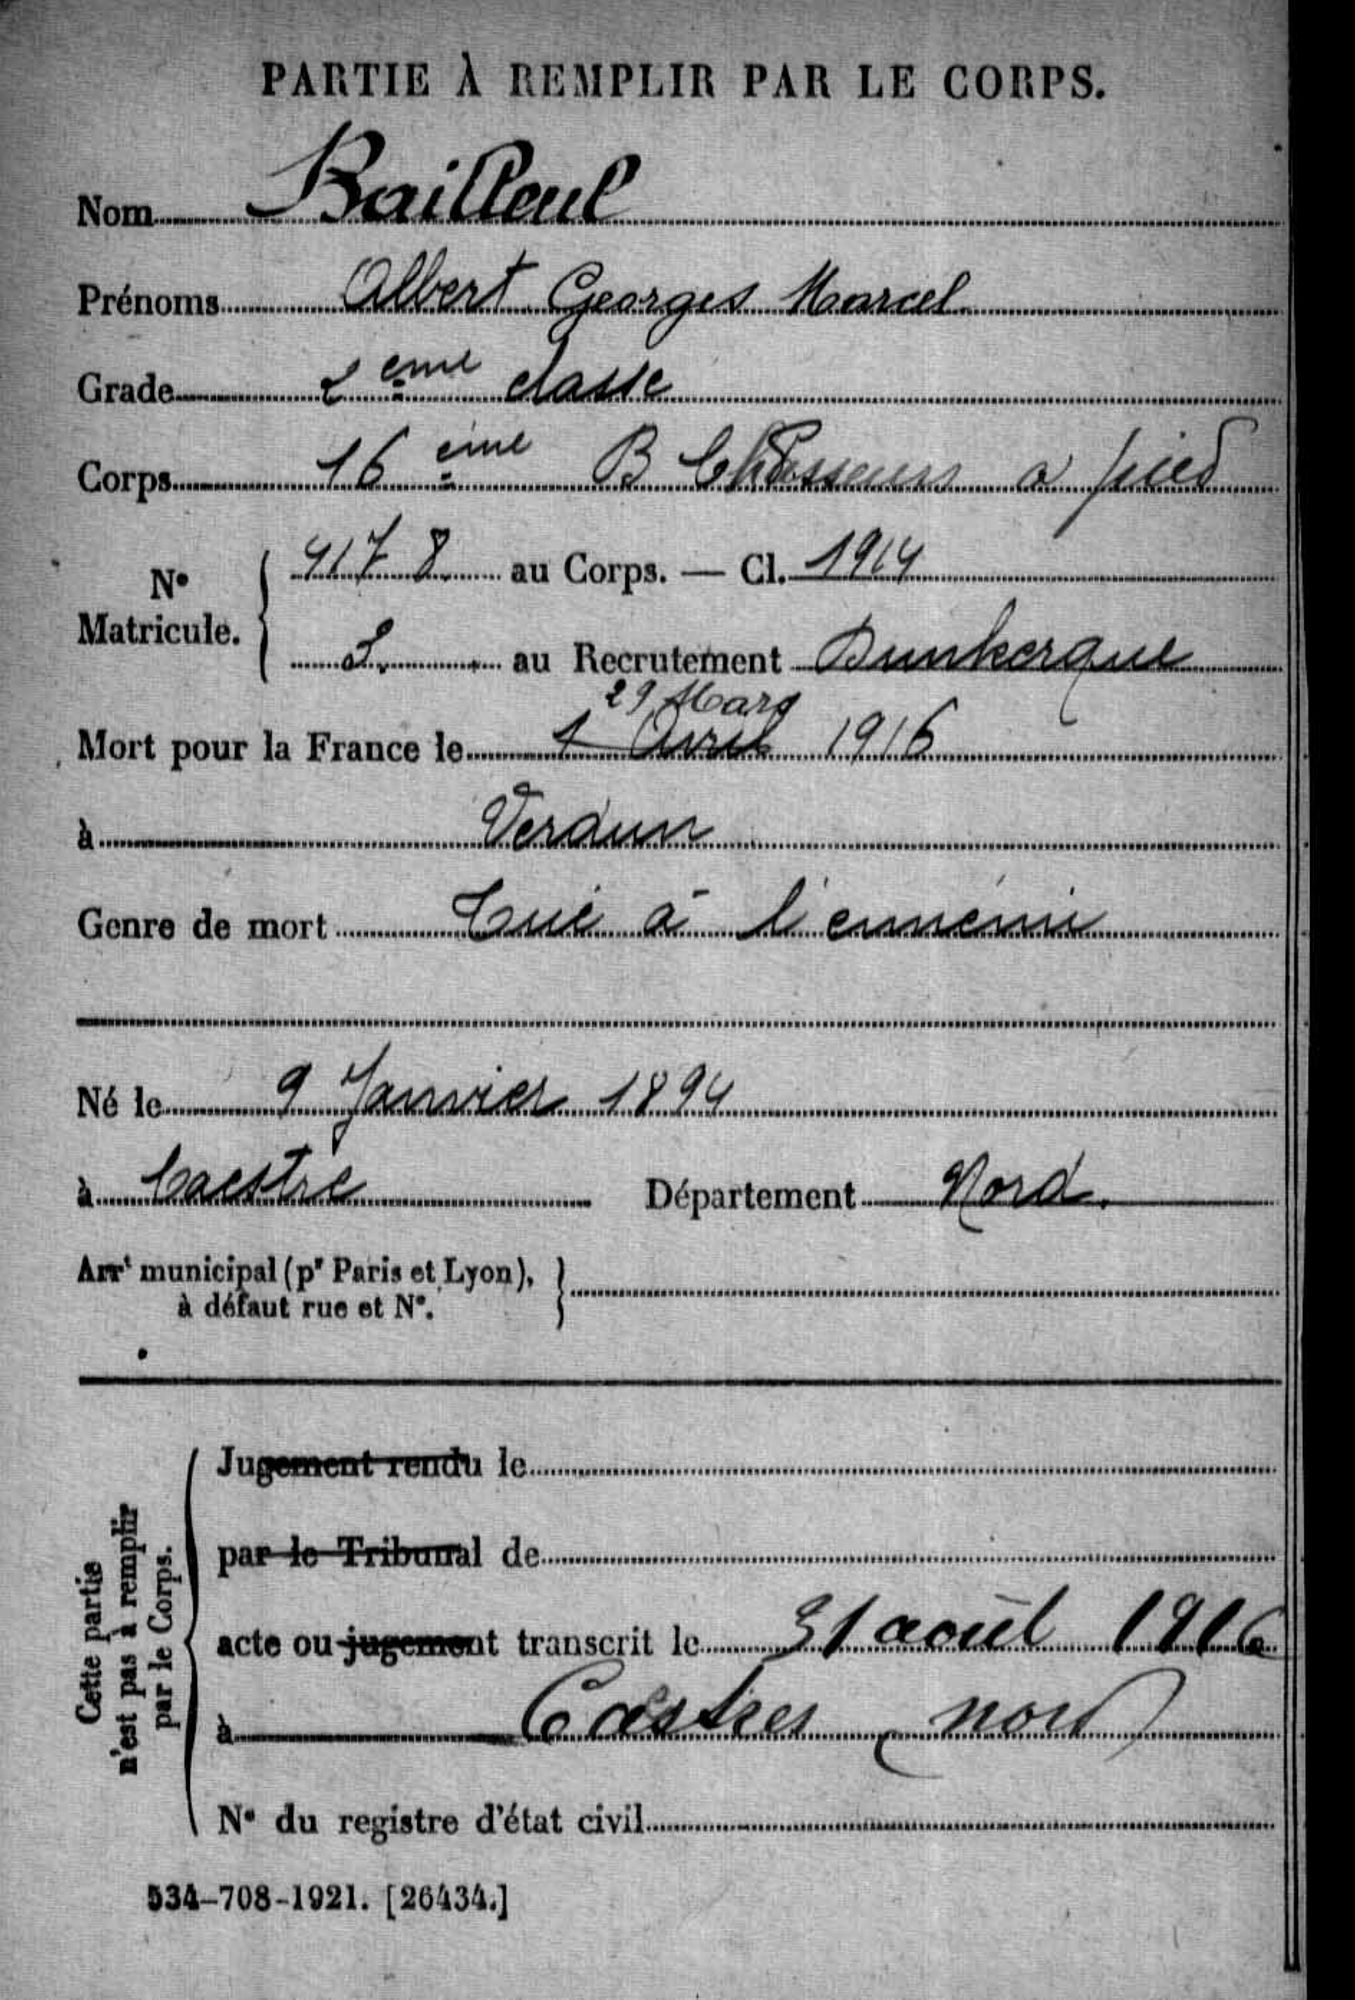 PARTIE À REMPLIR PAR LE CORPS.
Nom Bailleul
Prénoms Albert Georges Marcel
Grade 2 eme classe
Corps 16 eme B Chasseurs a pied
N° Matricule. 4178 au Corps. — Cl. 1914
au Recrutement Dunkerque
29 Mars
Mort pour la France le 1 Avril 1916
à Verdun
Genre de mort Tué à l'ennemi
Né le 9 Janvier 1894
à Caestre Département Nord.
Arrt municipal (pr Paris et Lyon),
à défaut rue et N°.
Cette partie
n'est pas à remplir
par le Corps.
Jugement rendu le
par le Tribunal de
acte ou jugement transcrit le 31 août 1916
à Castres nord
N° du registre d'état civil
534-708-1921. [26434.]